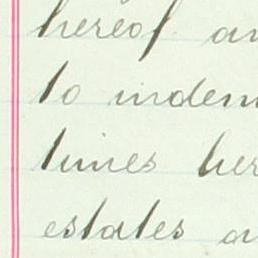 hereof an
to indem
times her
estates a